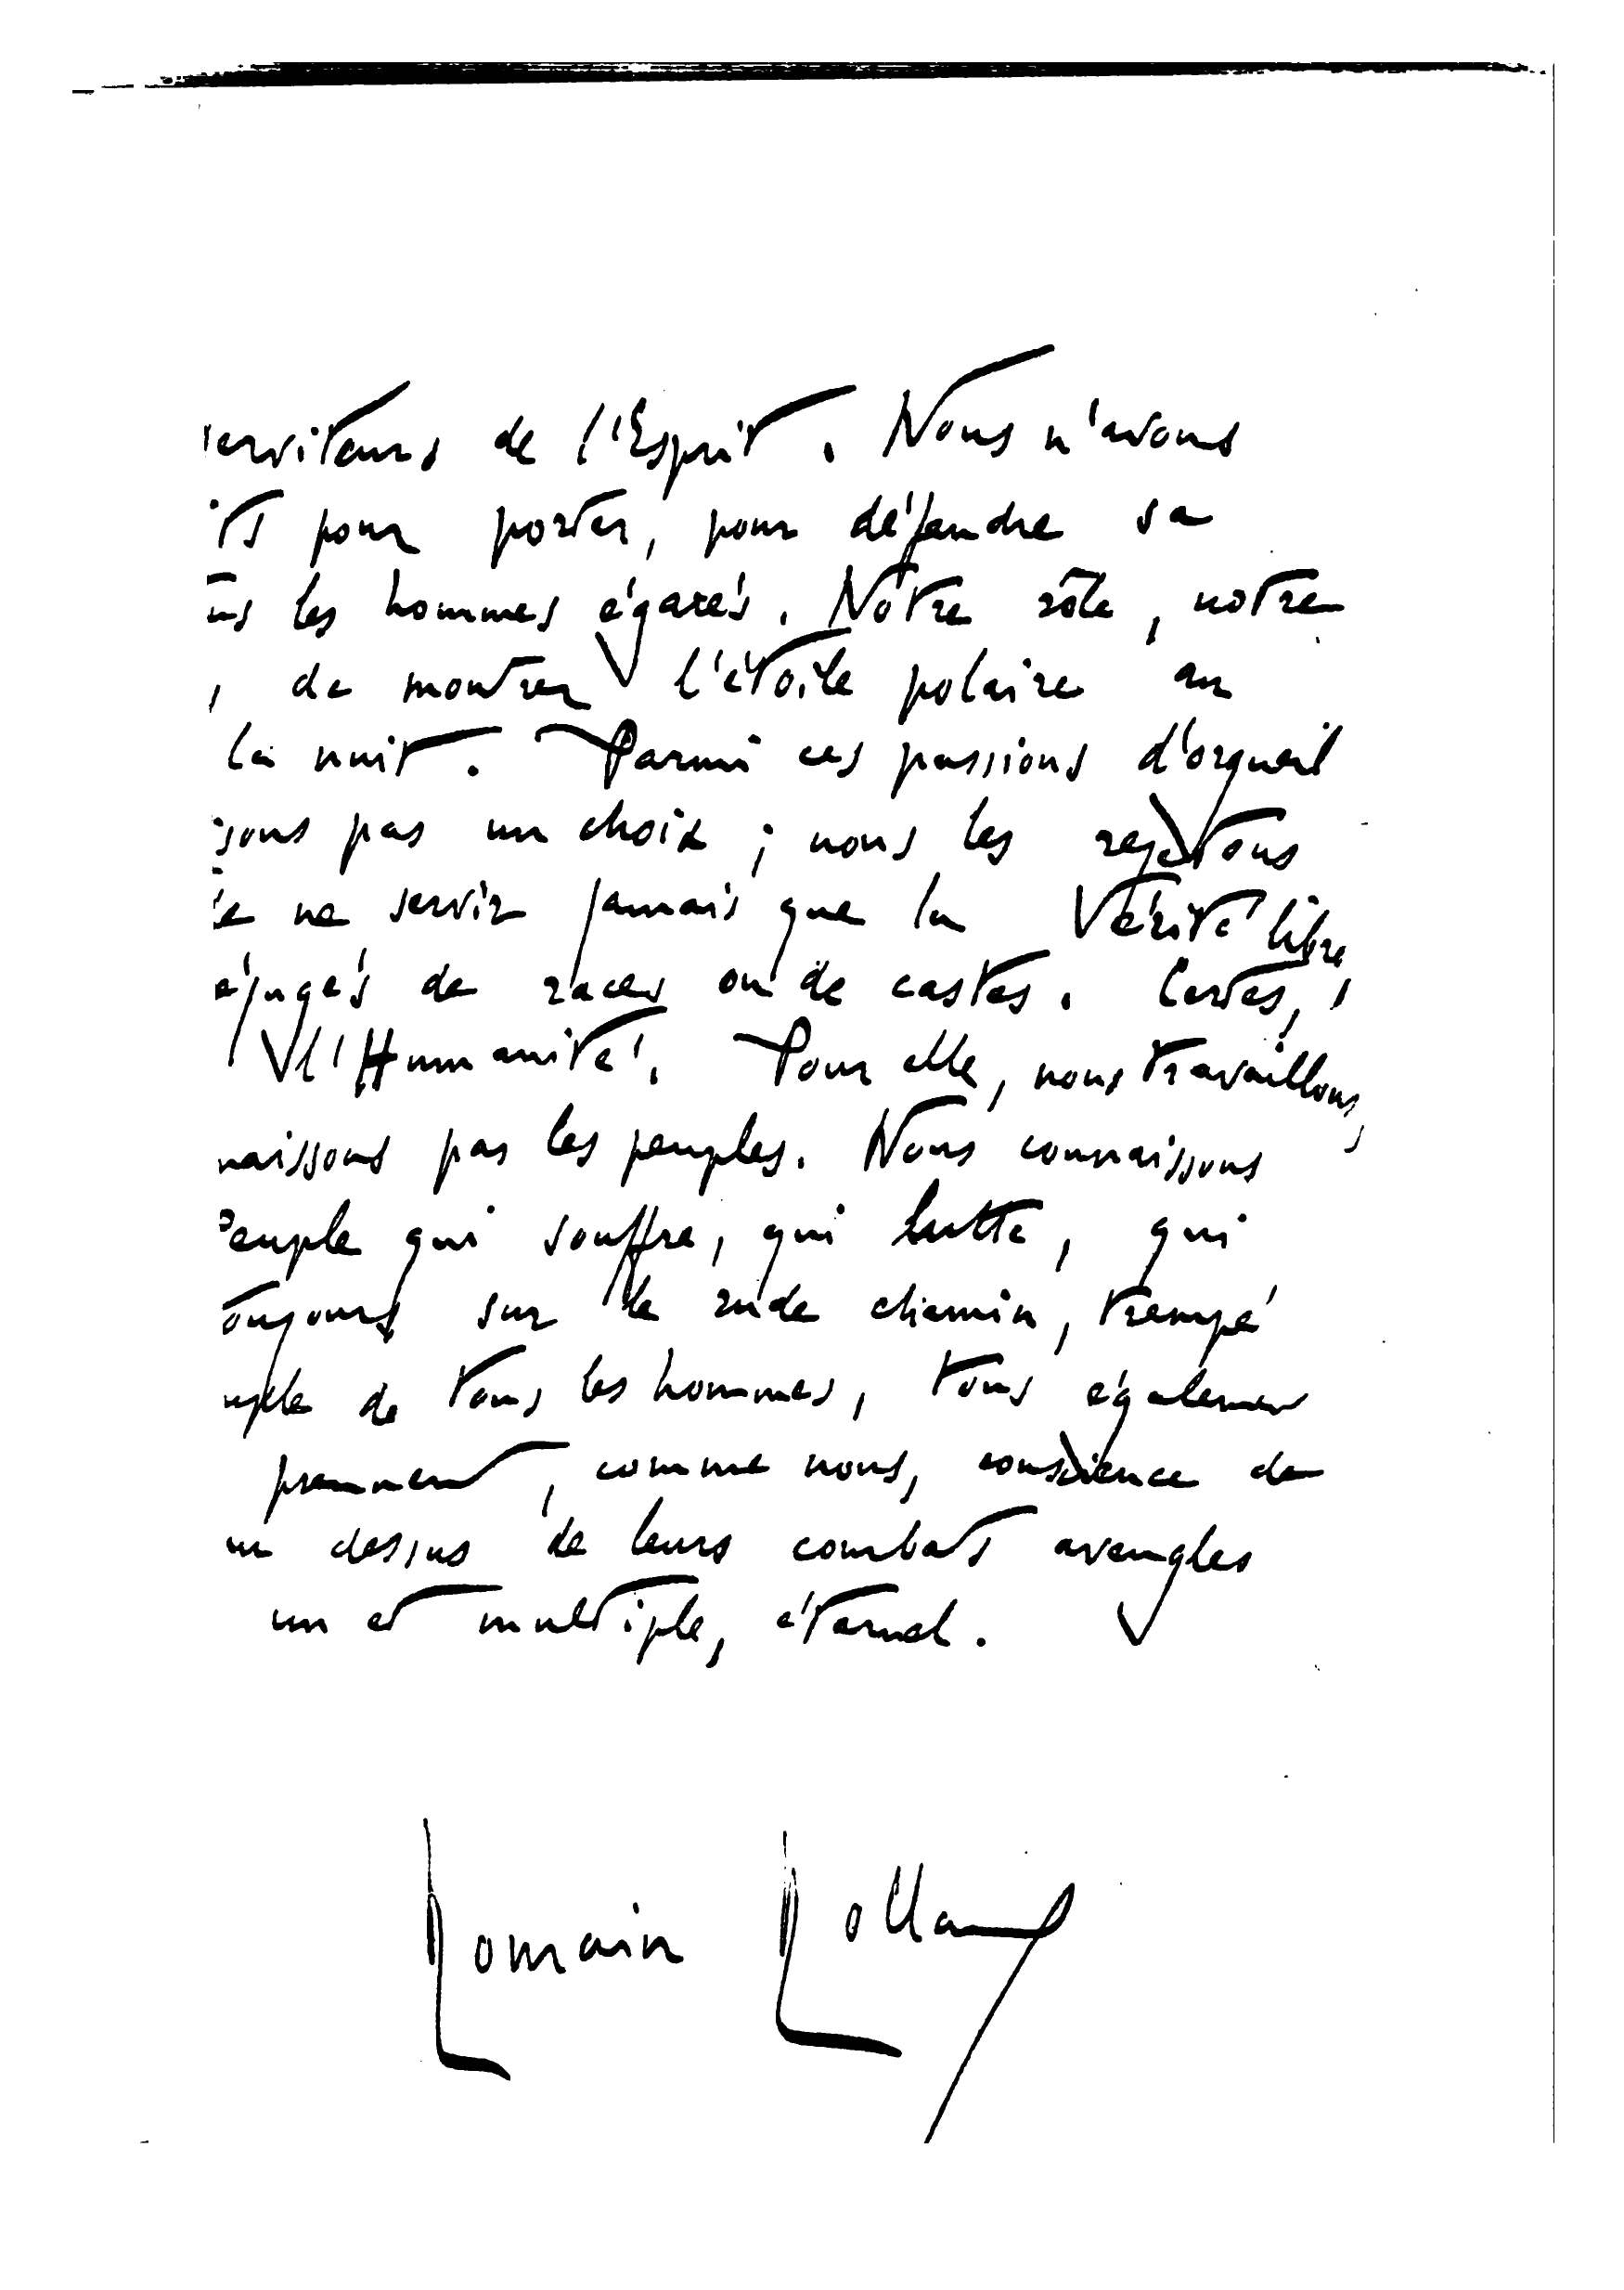 erviteurs de l'Esprit. Nous n'avons
its pour porter, pour défendre sa
us les hommes égarés. Notre rôle, notre
, de montrer l'étoile polaire au
la nuit. Parmi ces passions d'orgueil
sons pas un choix ; nous les rejetons
e ne servir jamais que la Vérité libre,
éjugés de races ou de castes. Certes,
l'Humanité. Pour elle, nous travaillons,
naissons pas les peuples. Nous connaissons
Peuple qui souffre, qui lutte, qui
oujours sur le rude chemin, trempé
uple de tous les hommes, tous égalemen
prennent, comme nous, conscience de
u dessus de leurs combats aveugles
un et multiple, éternel.
Romain Rolland